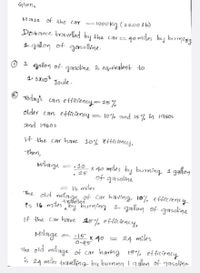 Given,
Mass of the car = 1000 kg (2200 lb)
Distance travelled by the car = 40 miles by burning
1 gallon of gasoline.
① 1 gallon of gasoline is equivalent to
Joule.
Today's car efficiency = 25%
older car efficiency = 10% and 15% in 1960s
and 1980s
if the car have 10% efficiency,
Then,
Mileage = × 40 miles by burning 1 gallon
of gasoline
= 16 miles
The old mileage of car having 10% efficiency
is 16 miles by burning 1 gallon of gasoline
if the car have 15% efficiency,
Mileage = × 40 = 24 miles
The old mileage of car having 15% efficiency
is 24 miles travelling by burning 1 gallon of gasoline